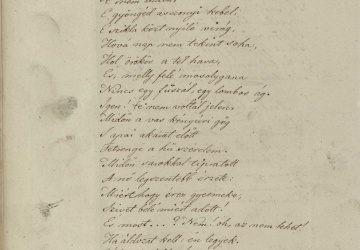 E gyöngéd asszonyi kebel,
E szikla közt nyíló virág,
Hova nap nem tekint soha,
Hol örökös a tél hava,
És, melly felé mosolygana
Nincs egy fűszál, egy lombos ág.
Igen! te nem voltál jelen,
Midőn a vas kényúri gőg
S apai akarat előtt
Tetszenge a hű szerelem.
Midőn sarokkal tipratott
A nő legszentebb érzete
Miért hogy érez gyermeke,
Szívét belé miért adott!
És most... ? Nem! óh, az nem lehet!
Ha áldozat kell: én legyek.